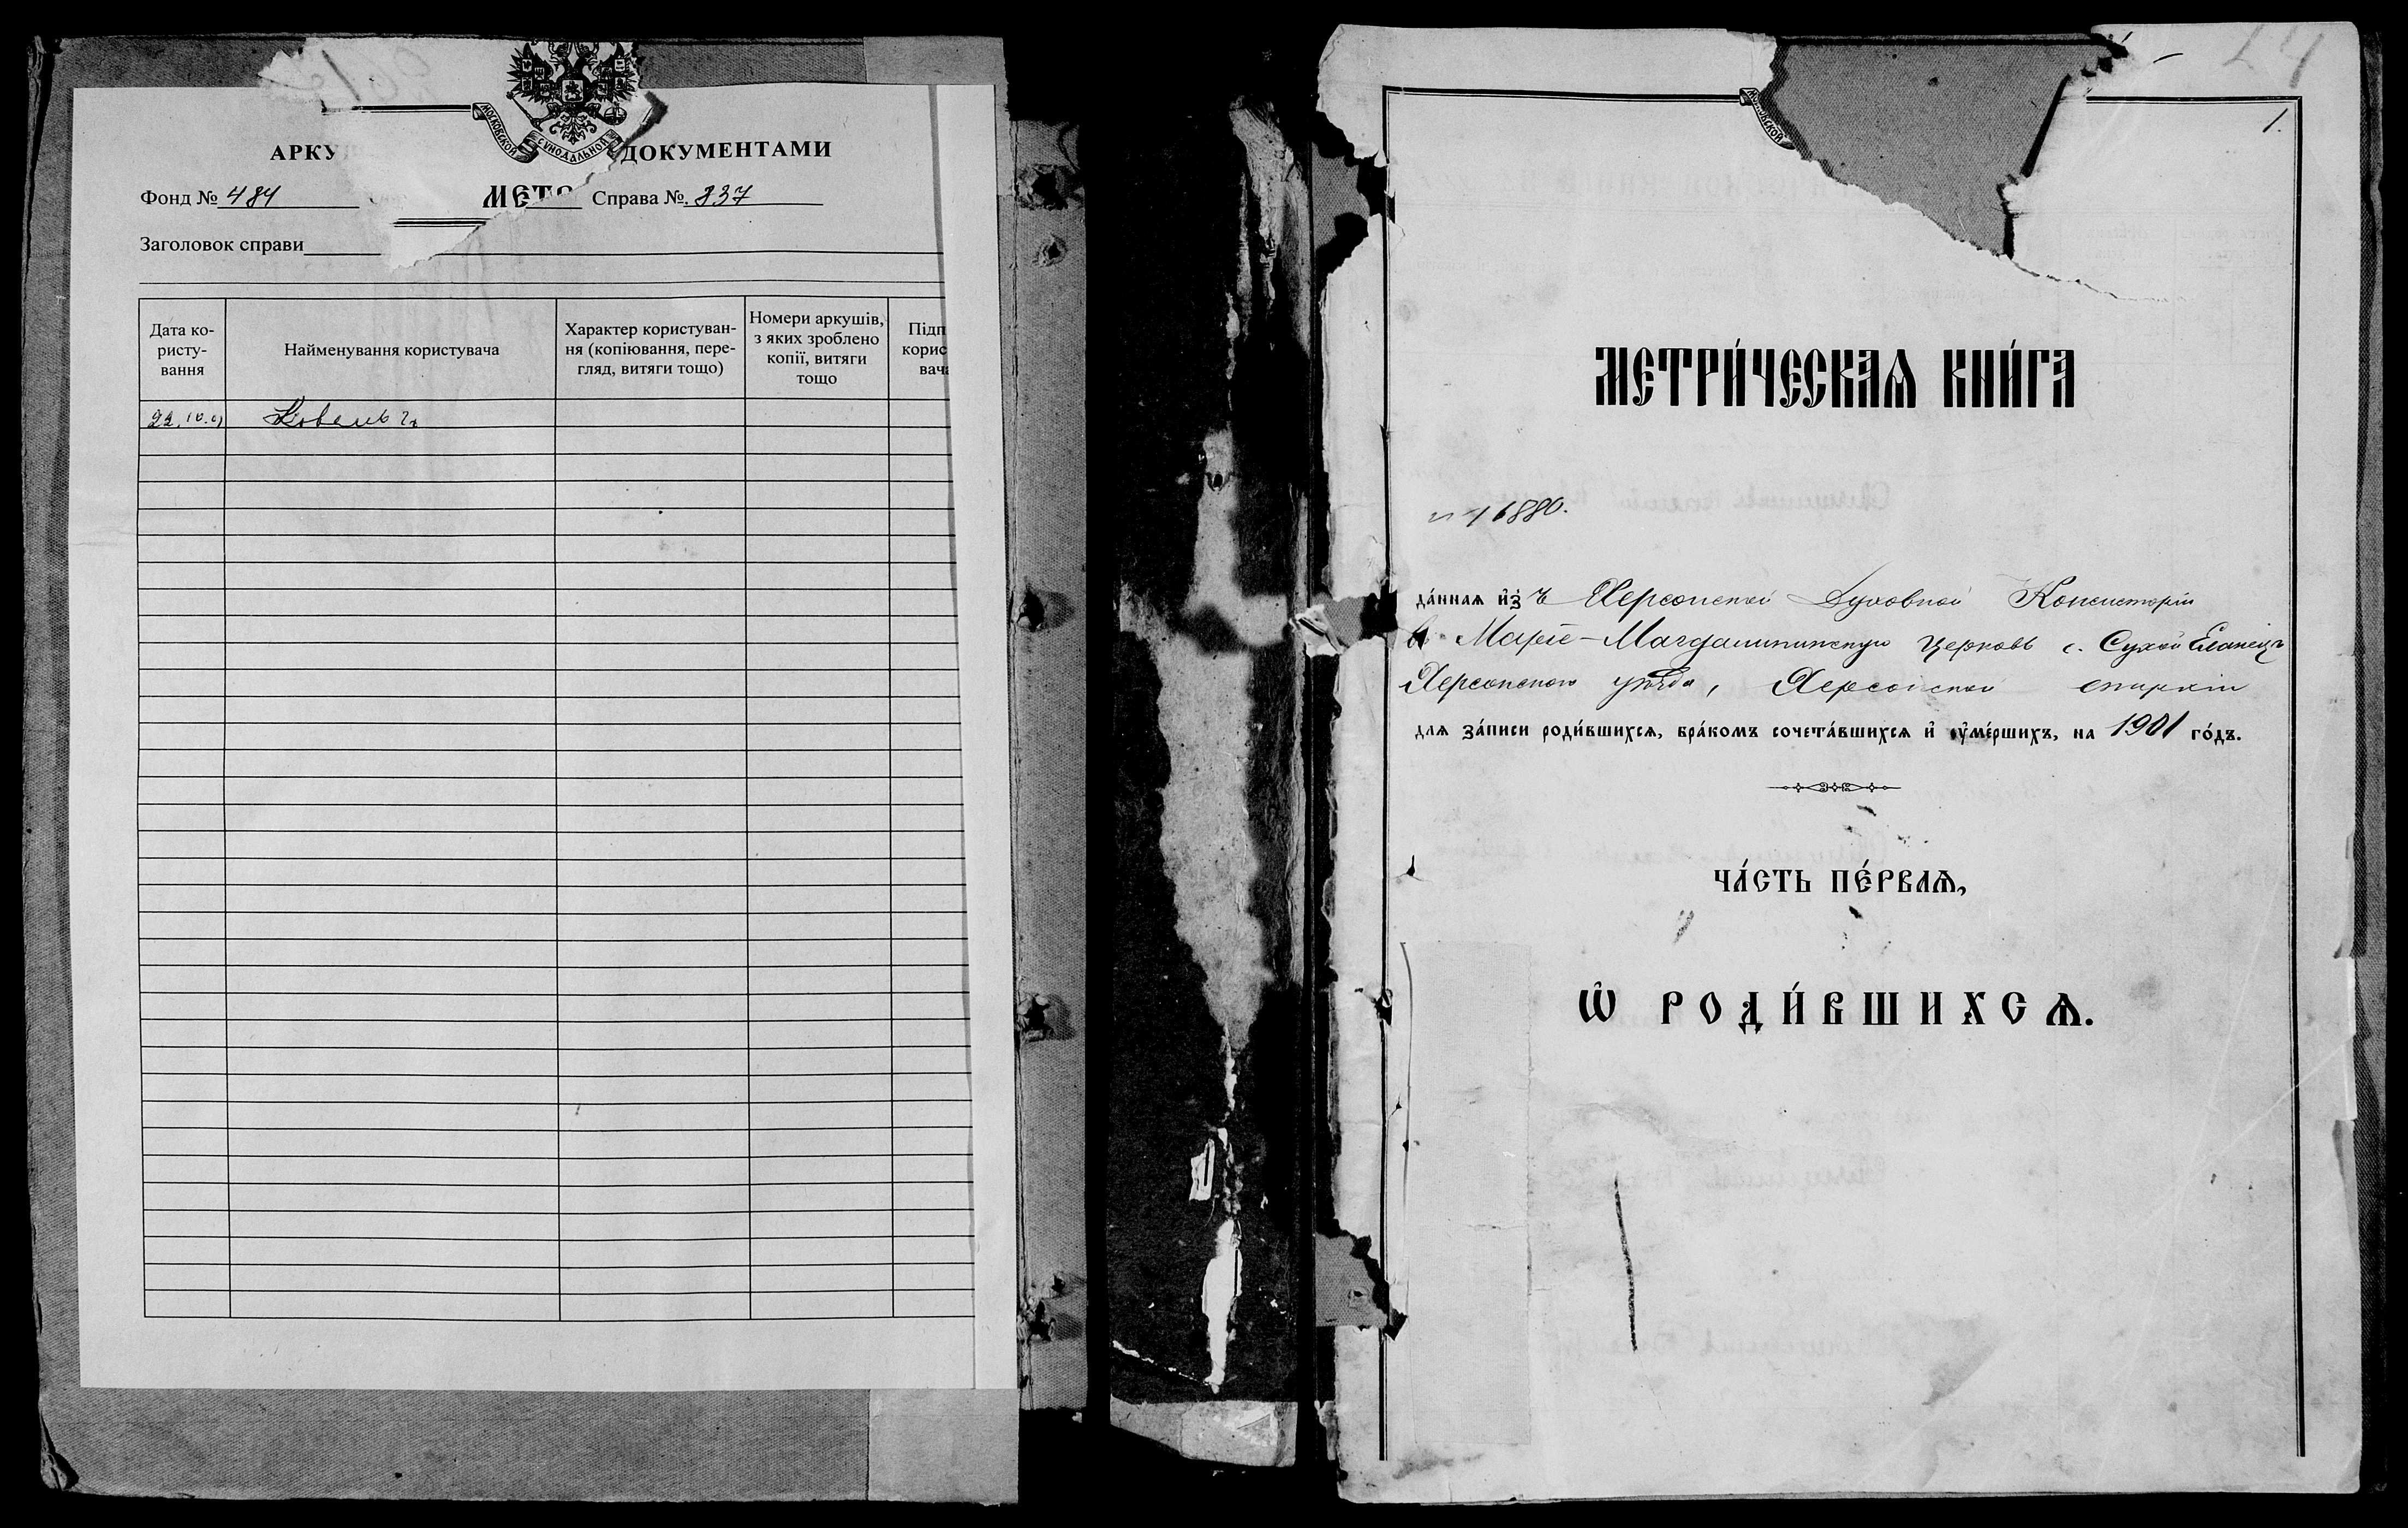 МОСКОВСКОЙ СУНОДАЛЬНОЙ
АРКУ
ДОКУМЕНТАМИ
МЕТ
Фонд № 484
Справа № 837
Заголовок справи
Дата ко-
ристу-
вання
Найменування користувача
Характер користуван-
ня (копіювання, пере-
гляд, витяги тощо)
Номери аркушів,
з яких зроблено
копії, витяги
тощо
Підп
корис
вача
22.
1.
МОСКОВСКОЙ
МЕТРИ́ЧЕСКАѦ КНИ́ГА
№ 16880.
да́ннаѧ и҆з ъ Херсонской Духовной Консисторіи
въ Маріе-Магдалининскую церковь с. Сухой Еланецъ
Херсонскаго уѣзда, Херсонской епархіи
длѧ за́писи роди́вшихсѧ, бра́комъ сочета́вшихсѧ и҆ ᲂу҆ме́ршихъ, на 1901 го́дъ.
ЧА́СТЬ ПЕ́РВАѦ,
Ѽ РОДИ́ВШИХСѦ.